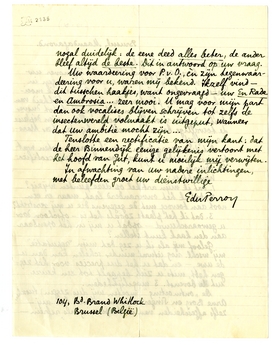 nogal duidelijk: de eene deed alles beter, de ander
bleef altijd de beste. Dit in antwoord op uw vraag.
Uw waardeering voor P.v.O. en zijn tegenwaar-
deering voor u, waren mij bekend. Ikzelf vind –
dit tusschen haakjes, want ongevraagd – uw En Rade
en Ambrosia... zeer mooi. U mag voor mijn part
dan ook vocalises blijven schrijven tot zelfs de
insectenwereld volmaakt is uitgeput, wanneer
dat uw ambitie mocht zijn...
Tenslotte een rectificatie van mijn kant: dat
de heer Binnendijk eenige gelijkenis vertoont met
het hoofd van Jut, kunt u moeilijk mij verwijten.
In afwachting van uw nadere inlichtingen,
met beleefden groet uw dienstwillige
EduPerron
104, Bd. Brand Whitlock
Brussel (België)